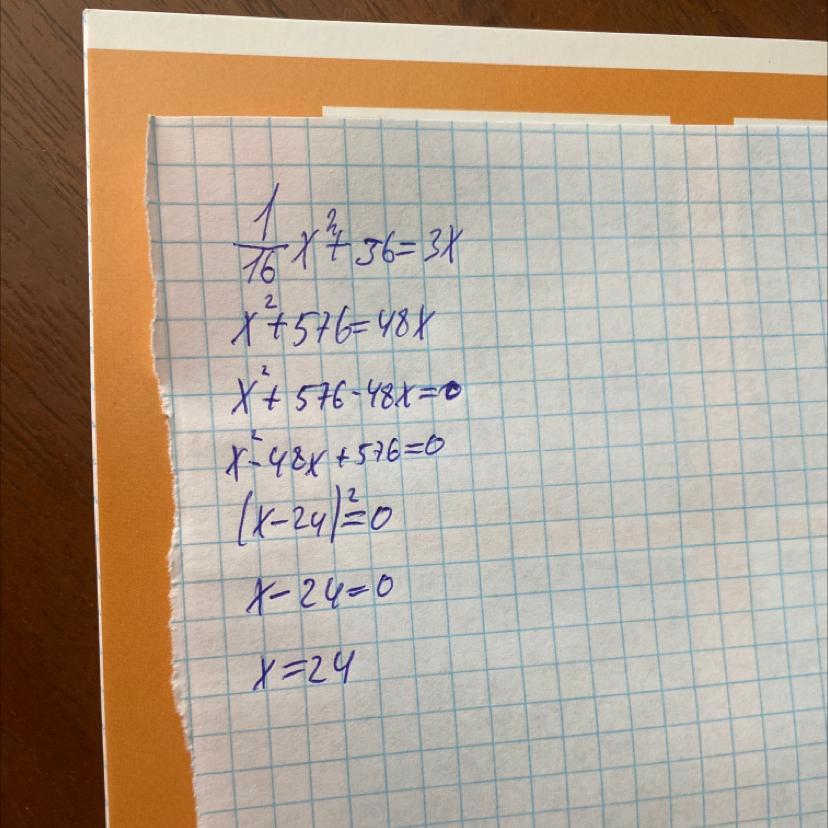 1/16 x² + 36 = 3x
x² + 576 = 48x
x² + 576 - 48x = 0
x² - 48x + 576 = 0
(x - 24)² = 0
x - 24 = 0
x = 24